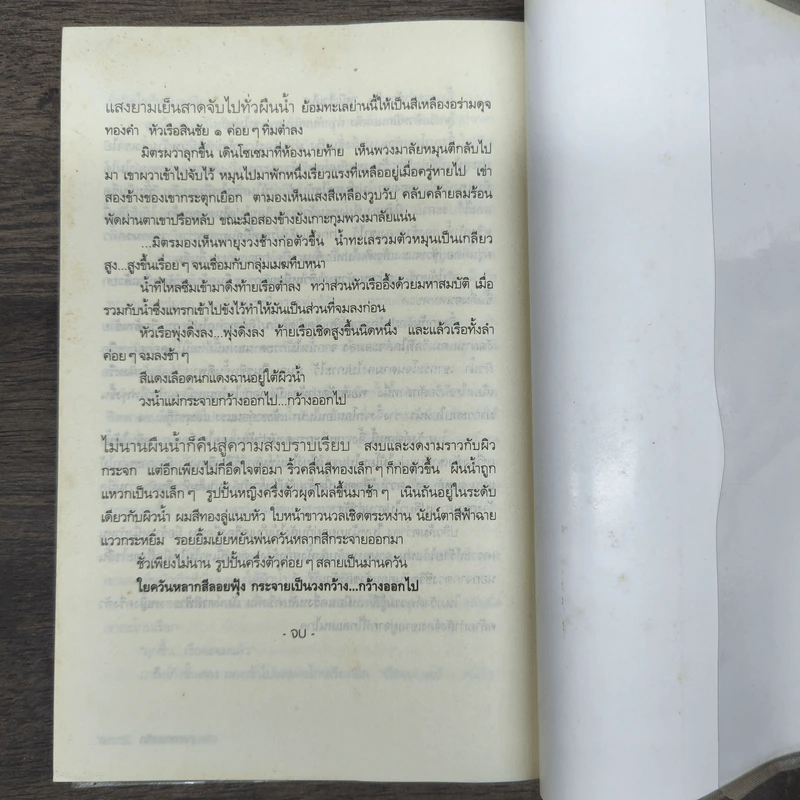 แสงยามเย็นสาดจับไปทั่วผืนน้ำ ย้อมทะเลย่านนี้ให้เป็นสีเหลืองอร่ามดุจ
ทองคำ หัวเรือสินชัย ๑ ค่อยๆ ทิ่มต่ำลง
มิตรผวาลุกขึ้น เดินโซเซมาที่ห้องนายท้าย เห็นพวงมาลัยหมุนตีกลับไป
มา เขาผวาเข้าไปจับไว้ หมุนไปมาพักหนึ่งเรี่ยวแรงที่เหลืออยู่เมื่อครู่หายไป เข่า
สองข้างของเขากระตุกเยือก ตามองเห็นแสงสีเหลืองวูบวับ คลับคล้ายลมร้อน
พัดผ่านตาเขาปรือหลับ ขณะมือสองข้างยังเกาะกุมพวงมาลัยแน่น
...มิตรมองเห็นพายุงวงช้างก่อตัวขึ้น น้ำทะเลรวมตัวหมุนเป็นเกลียว
สูง...สูงขึ้นเรื่อยๆ จนเชื่อมกับกลุ่มเมฆทึบหนา
น้ำที่ไหลซึมเข้ามาดึงท้ายเรือต่ำลง ทว่าส่วนหัวเรืออึ้งด้วยมหาสมบัติ เมื่อ
รวมกับน้ำซึ่งแทรกเข้าไปขังไว้ทำให้มันเป็นส่วนที่จมลงก่อน
หัวเรือพุ่งดิ่งลง...พุ่งดิ่งลง ท้ายเรือเชิดสูงขึ้นนิดหนึ่ง และแล้วเรือทั้งลำ
ค่อยๆ จมลงช้าๆ
สีแดงเลือดนกแดงฉานอยู่ใต้ผิวน้ำ
วงน้ำแผ่กระจายกว้างออกไป...กว้างออกไป
ไม่นานผืนน้ำก็คืนสู่ความสงบราบเรียบ สงบและงดงามราวกับผิว
กระจก แต่อีกเพียงไม่กี่อึดใจต่อมา ริ้วคลื่นสีทองเล็กๆ ก็ก่อตัวขึ้น ผืนน้ำถูก
แหวกเป็นวงเล็กๆ รูปปั้นหญิงครึ่งตัวผุดโผล่ขึ้นมาช้าๆ เนินถันอยู่ในระดับ
เดียวกับผิวน้ำ ผมสีทองลู่แนบหัว ใบหน้าขาวนวลเชิดตระหง่าน นัยน์ตาสีฟ้าฉาย
แววกระหยิ่ม รอยยิ้มเย้ยหยันพ่นควันหลากสีกระจายออกมา
ชั่วเพียงไม่นาน รูปปั้นครึ่งตัวค่อยๆ สลายเป็นม่านควัน
ใยควันหลากสีลอยฟุ้ง กระจายเป็นวงกว้าง...กว้างออกไป
- จบ -